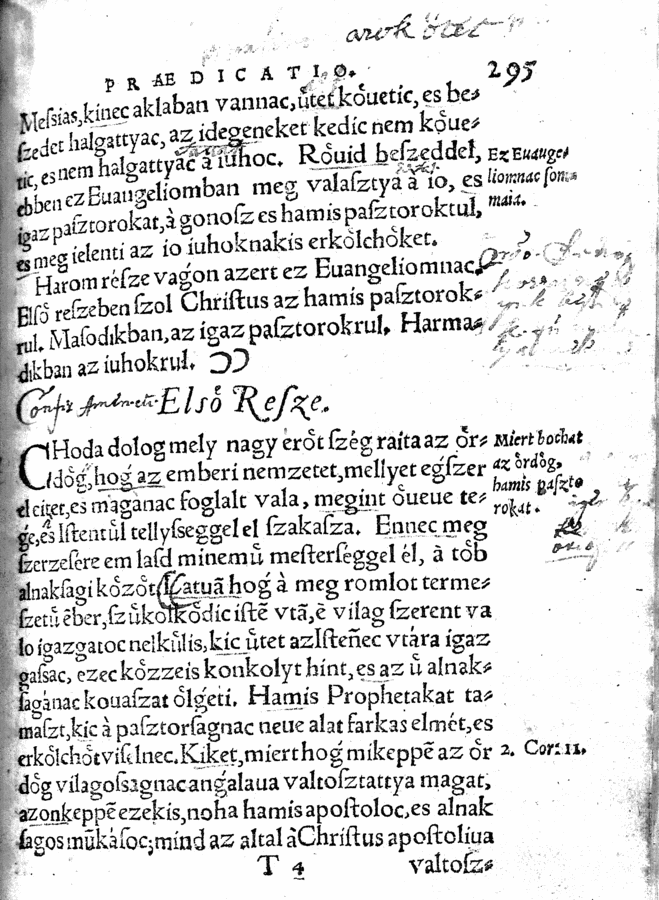 arok ótet
PRÆDICATIO. 295
Meſsias, kinec aklaban vannac, ůtet kǒuetic, es be⸗
ſzedet halgattyac, az idegeneket kedic nem kǒue⸗
tic, es nem halgattyac à iuhoc. Rǒuid beſzeddel,
ebben ez Euangeliomban meg valaſztya à io, es
igaz paſztorokat, à gonoſz es hamis paſztoroktul,
es meg ielenti az io iuhoknakis erkǒlchǒket.
Ez Euauge⸗
liomnac ſom⸗
maia.
Harom réſze vagon azert ez Euangeliomnac.
Elſǒ reſzeben ſzol Chriſtus az hamis paſztorok⸗
rul. Maſodikban, az igaz paſztorokrul. Harma⸗
dikban az iuhokrul.
Elſǒ Reſze.
CHoda dolog mely nagy erǒt ſzég raita az ǒr⸗
dǒǵ, hoǵ az emberi nemzetet, mellyet eǵſzer
el eitet, es maganac foglalt vala, megint ǒueue te⸗
ǵe, és Iſtentůl tellyſseggel el ſzakaſza. Ennec meg
ſzerzeſere em laſd minemů meſterſeggel él, à tǒb
alnakſagi kǒzǒt. Latuā hoǵ à meg romlot terme⸗
ſzetů ēber, ſzůkolkǒdic iſtē vtā, ē vilag ſzerent va
lo igazgatoc nelkůlis, kic ůtet az Iſteñec vtára igaz
gaſsac, ezec kǒzzeis konkolyt hint, es az ů alnak⸗
ſagánac kouaſzat ǒlǵeti. Hamis Prophetakat ta⸗
maſzt, kic à paſztorſagnac neue alat farkas elmét, es
erkǒlchǒt viſelnec. Kiket, miert hoǵ mikeppē az ǒr
dǒg vilagoſsagnac anǵalaua valtoſztattya magat,
azonkeppē ezekis, noha hamis apoſtoloc, es alnak
ſagos můkáſoc; mind az altal à Chriſtus apoſtoliua
Miert bochat
az ǒrdǒg,
hamis paſzto
rokat.
2. Cor: 11.
T 4 valtoſz⸗